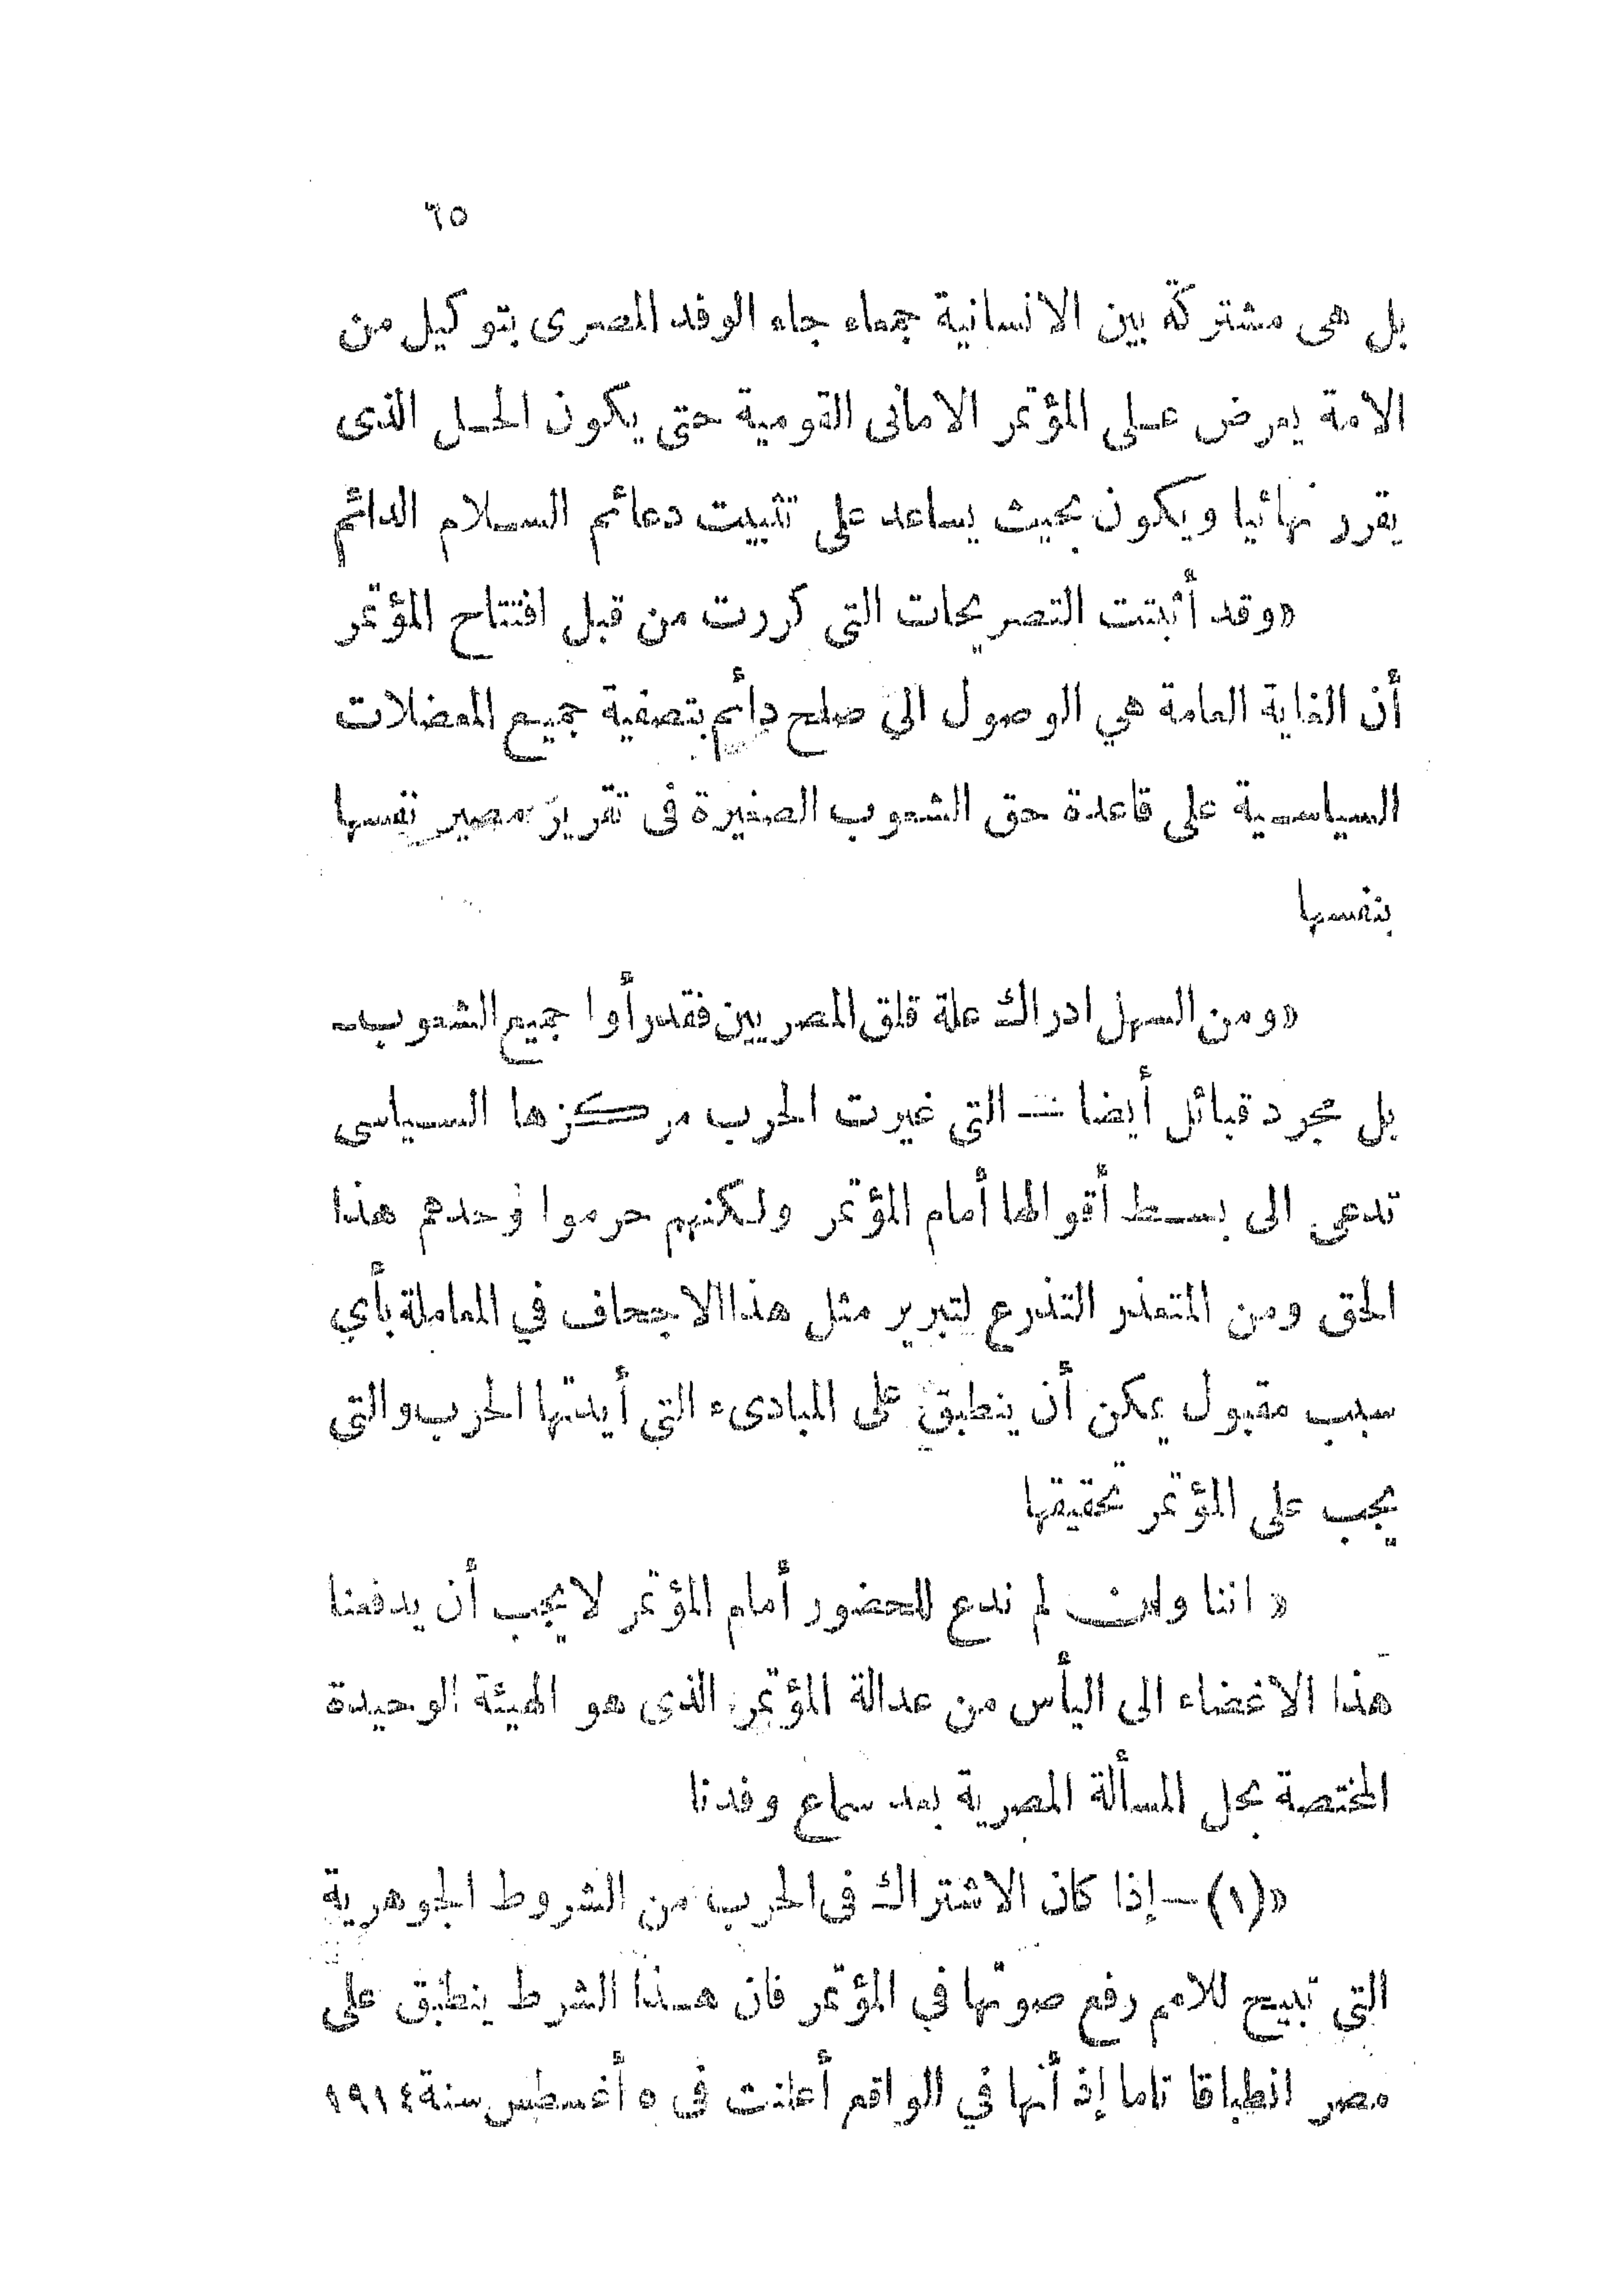 ٦٥
بل هى مشتركة بين الانسانية جمعاء جاء الوفد المصرى بتوكيل من
الامة يعرض على المؤتمر الامانى القومية حتى يكون الحل الذى
يقرر نهائيا ويكون بحيث يساعد على تثبيت دعائم السلام الدائم
«وقد أثبتت التصريحات التى كررت من قبل افتتاح المؤتمر
أن الغاية العامة هي الوصول الي صلح دائم بتصفية جميع المعضلات
السياسية على قاعدة حق الشعوب الصغيرة فى تقرير مصير نفسها
بنفسها
«ومن السهل ادراك علة قلق المصريين فقد رأوا جميع الشعوب ـ
بل مجرد قبائل أيضا ـ التي غيرت الحرب مركزها السياسى
تدعى الى بسط أقوالها أمام المؤتمر ولكنهم حرموا وحدهم هذا
الحق ومن المتعذر التذرع لتبرير مثل هذا الاجحاف في المعاملة بأي
سبب مقبول يمكن أن ينطبق على المبادىء التي أيدتها الحرب والتى
يجب على المؤتمر تحقيقها
« اننا وان لم ندع للحضور أمام المؤتمر لا يجب أن يدفعنا
هذا الاغضاء الى اليأس من عدالة المؤتمر الذى هو الهيئة الوحيدة
المختصة بحل المسألة المصرية بعد سماع وفدنا
«(١) ـ إذا كان الاشتراك فى الحرب من الشروط الجوهرية
التى تبيح للامم رفع صوتها في المؤتمر فان هذا الشرط ينطبق على
مصر انطباقا تاما إذ أنها في الواقع أعلنت فى ٥ أغسطس سنة ١٩١٤